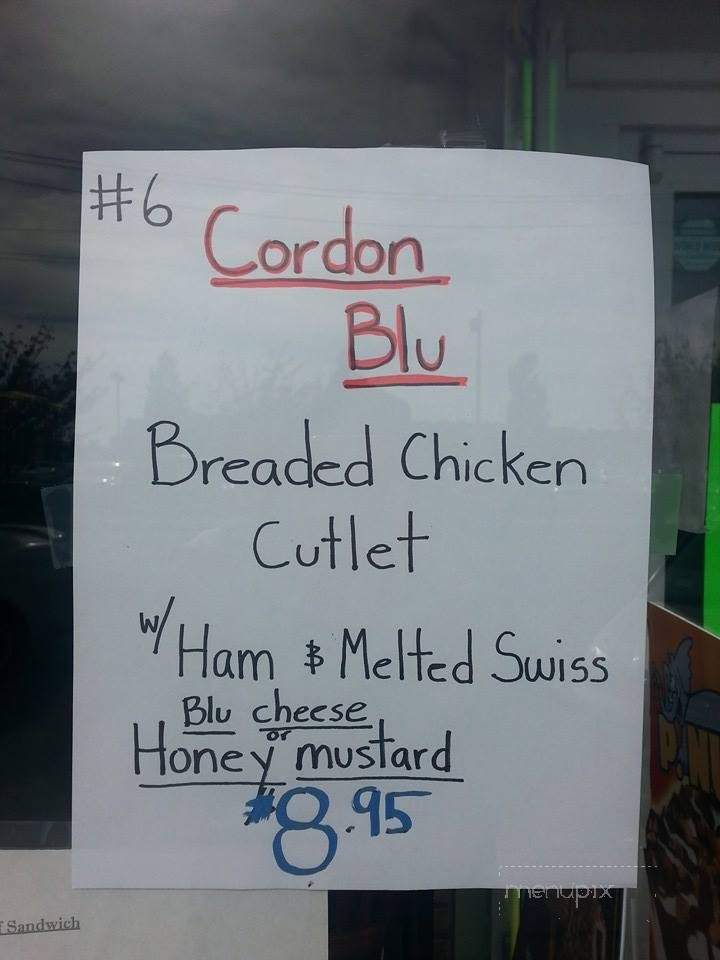 #6
Cordon
Blu
Breaded Chicken
Cutlet
w/ Ham & Melted Swiss
Blu cheese
or
Honey mustard
$8.95
menupix
Sandwich